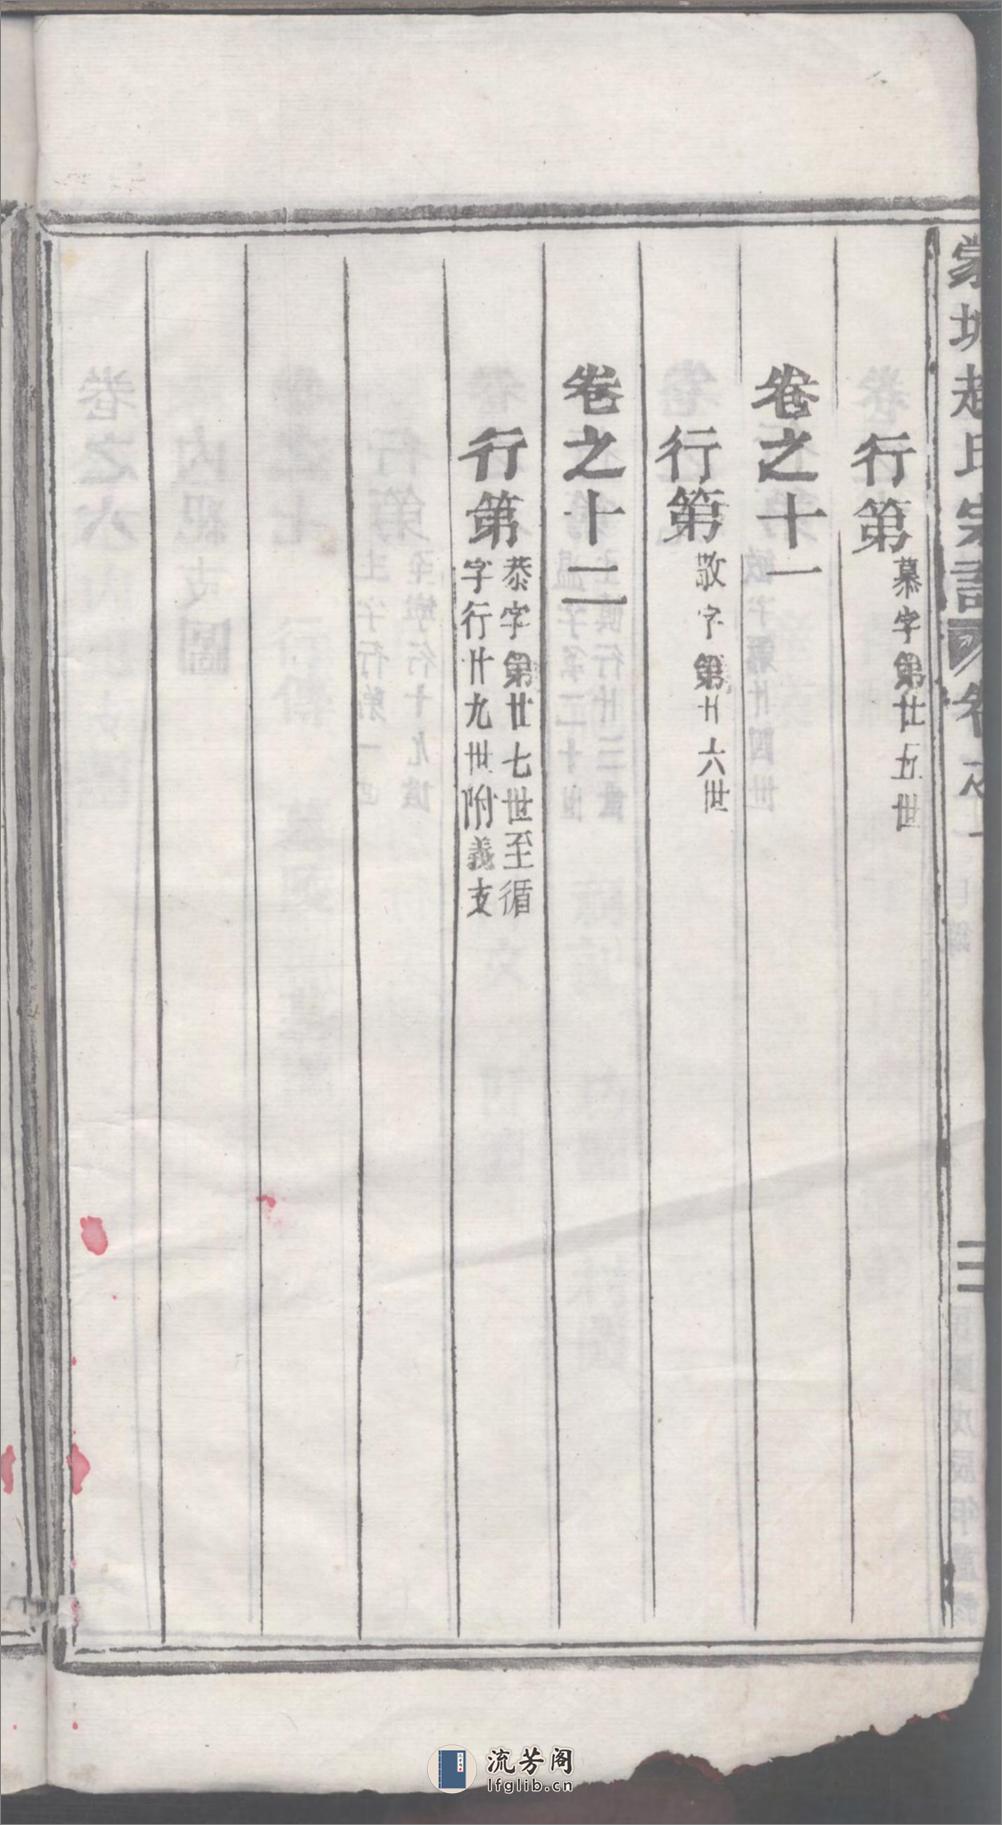 趙氏宗譜
行第 慕字第廿五世
卷之十一
行第 敬字第廿六世
卷之十二
行第 恭字第廿七世至循
字行廿九世附義支
流芳阁
lfglib.cn